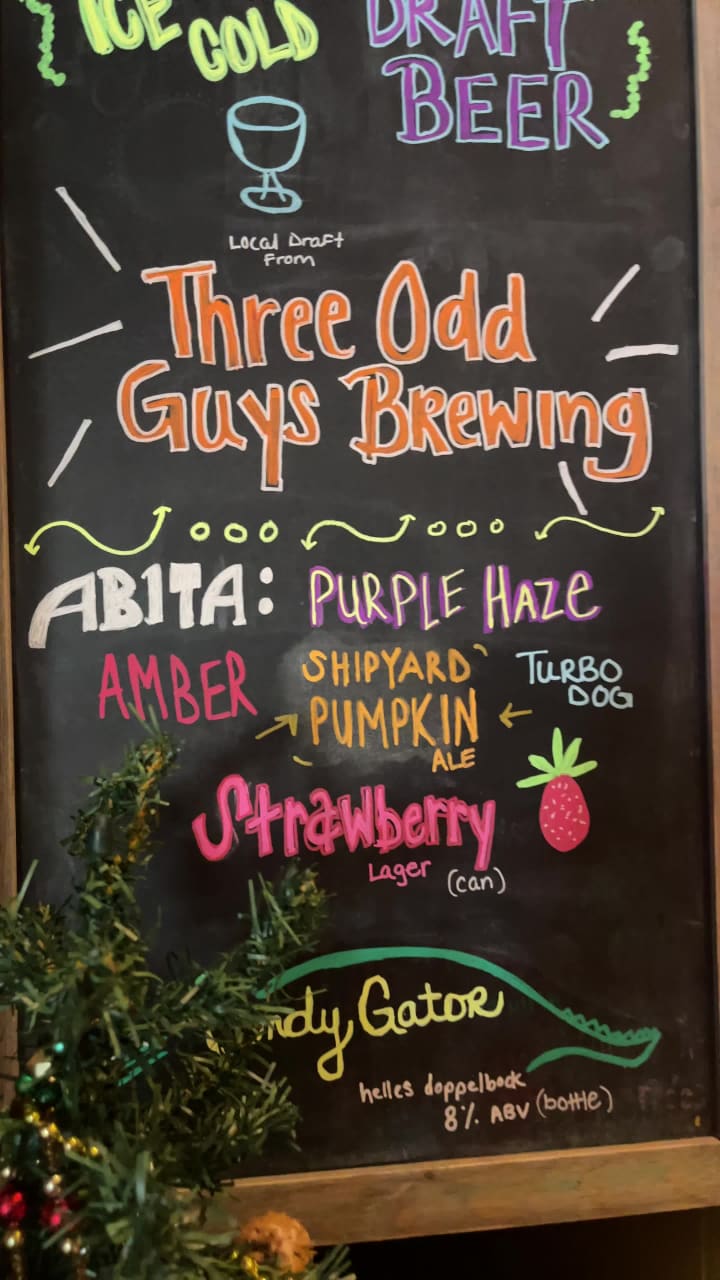 ICE COLD
DRAFT
BEER
Local Draft
From
Three Odd
Guys Brewing
ABITA: PURPLE HAZE
AMBER
SHIPYARD
PUMPKIN
ALE
TURBO
DOG
Strawberry
Lager (can)
ndy Gator
helles doppelbock
8% ABV (bottle)